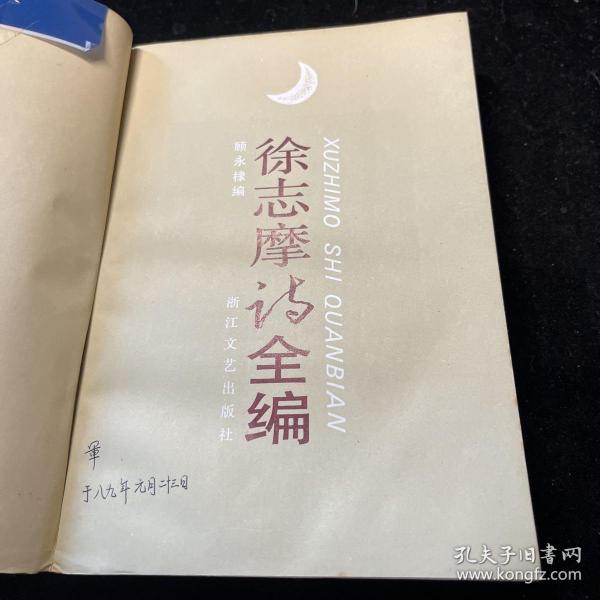 徐志摩诗全编
XUZHIMO SHI QUANBIAN
顾永棣编
浙江文艺出版社
于八九年元月二十三日
孔夫子旧书网
www.kongfz.com